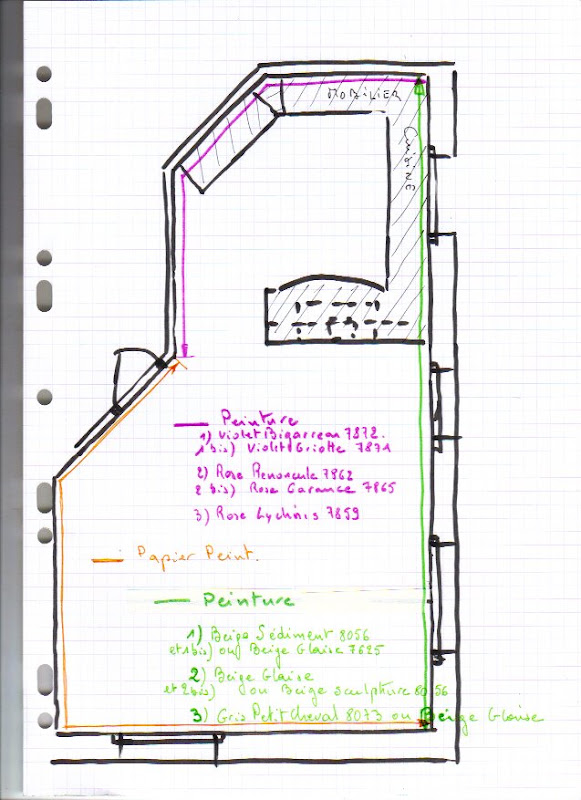 MOBILIER
CUISINE
Peinture
1) Violet Bigarreau 7872.
1 bis) Violet Griotte 7871
2) Rose Renoncule 7862
2 bis) Rose Garance 7865
3) Rose Lychnis 7859
Papier Peint.
Peinture
1) Beige Sédiment 8056
et 1 bis) ou Beige Glaise 7625
2) Beige Glaise
et 2 bis) ou Beige sculpture 8056
3) Gris Petit Cheval 8073 ou Beige Glaise